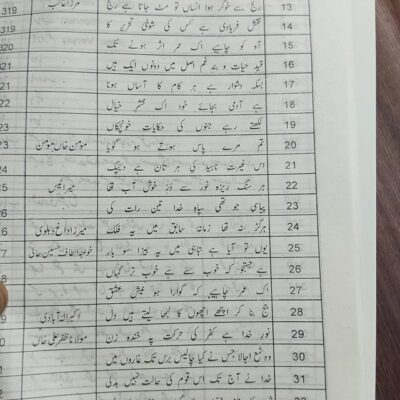 319 مرزا غالب رنج سے خوگر ہوا انساں تو مٹ جاتا ہے رنج 13
319 نقش فریادی ہے کس کی شوخئ تحریر کا 14
320 آہ کو چاہیے اک عمر اثر ہونے تک 15
321 قید حیات و بند غم اصل میں دونوں ایک ہیں 16
بسکہ دشوار ہے ہر کام کا آساں ہونا 17
ہے آدمی بجائے خود اک محشر خیال 18
لکھتے رہے جنوں کی حکایات خونچکاں 19
23 مومن خاں مومن تم مرے پاس ہوتے ہو گویا 20
اس غیرت ناہید کی ہر تان ہے دیپک 21
25 میر انیس ہر سنگ ریزہ نور سے در خوش آب تھا 22
پیاسی جو تھی سپاہ خدا تین رات کی 23
میرزا داغ دہلوی ہرگز نہ تھا زمانۂ سابق میں یہ فلک 24
خواجہ الطاف حسین حالی یوں تو آیا ہے تباہی میں یہ بیڑا سو بار 25
ہے جستجو کہ خوب سے ہے خوب تر کہاں 26
اک عمر چاہیے کہ گوارا ہو نیش عشق 27
اکبر الہ آبادی حج بنا کر اچھے اچھوں کا لبھا لیتے ہیں دل 28
مولانا ظفر علی خاں نور خدا ہے کفر کی حرکت پہ خندہ زن 29
وہ شمع اجالا جس نے کیا چالیس برس تک غاروں میں 30
خدا نے آج تک اس قوم کی حالت نہیں بدلی 31